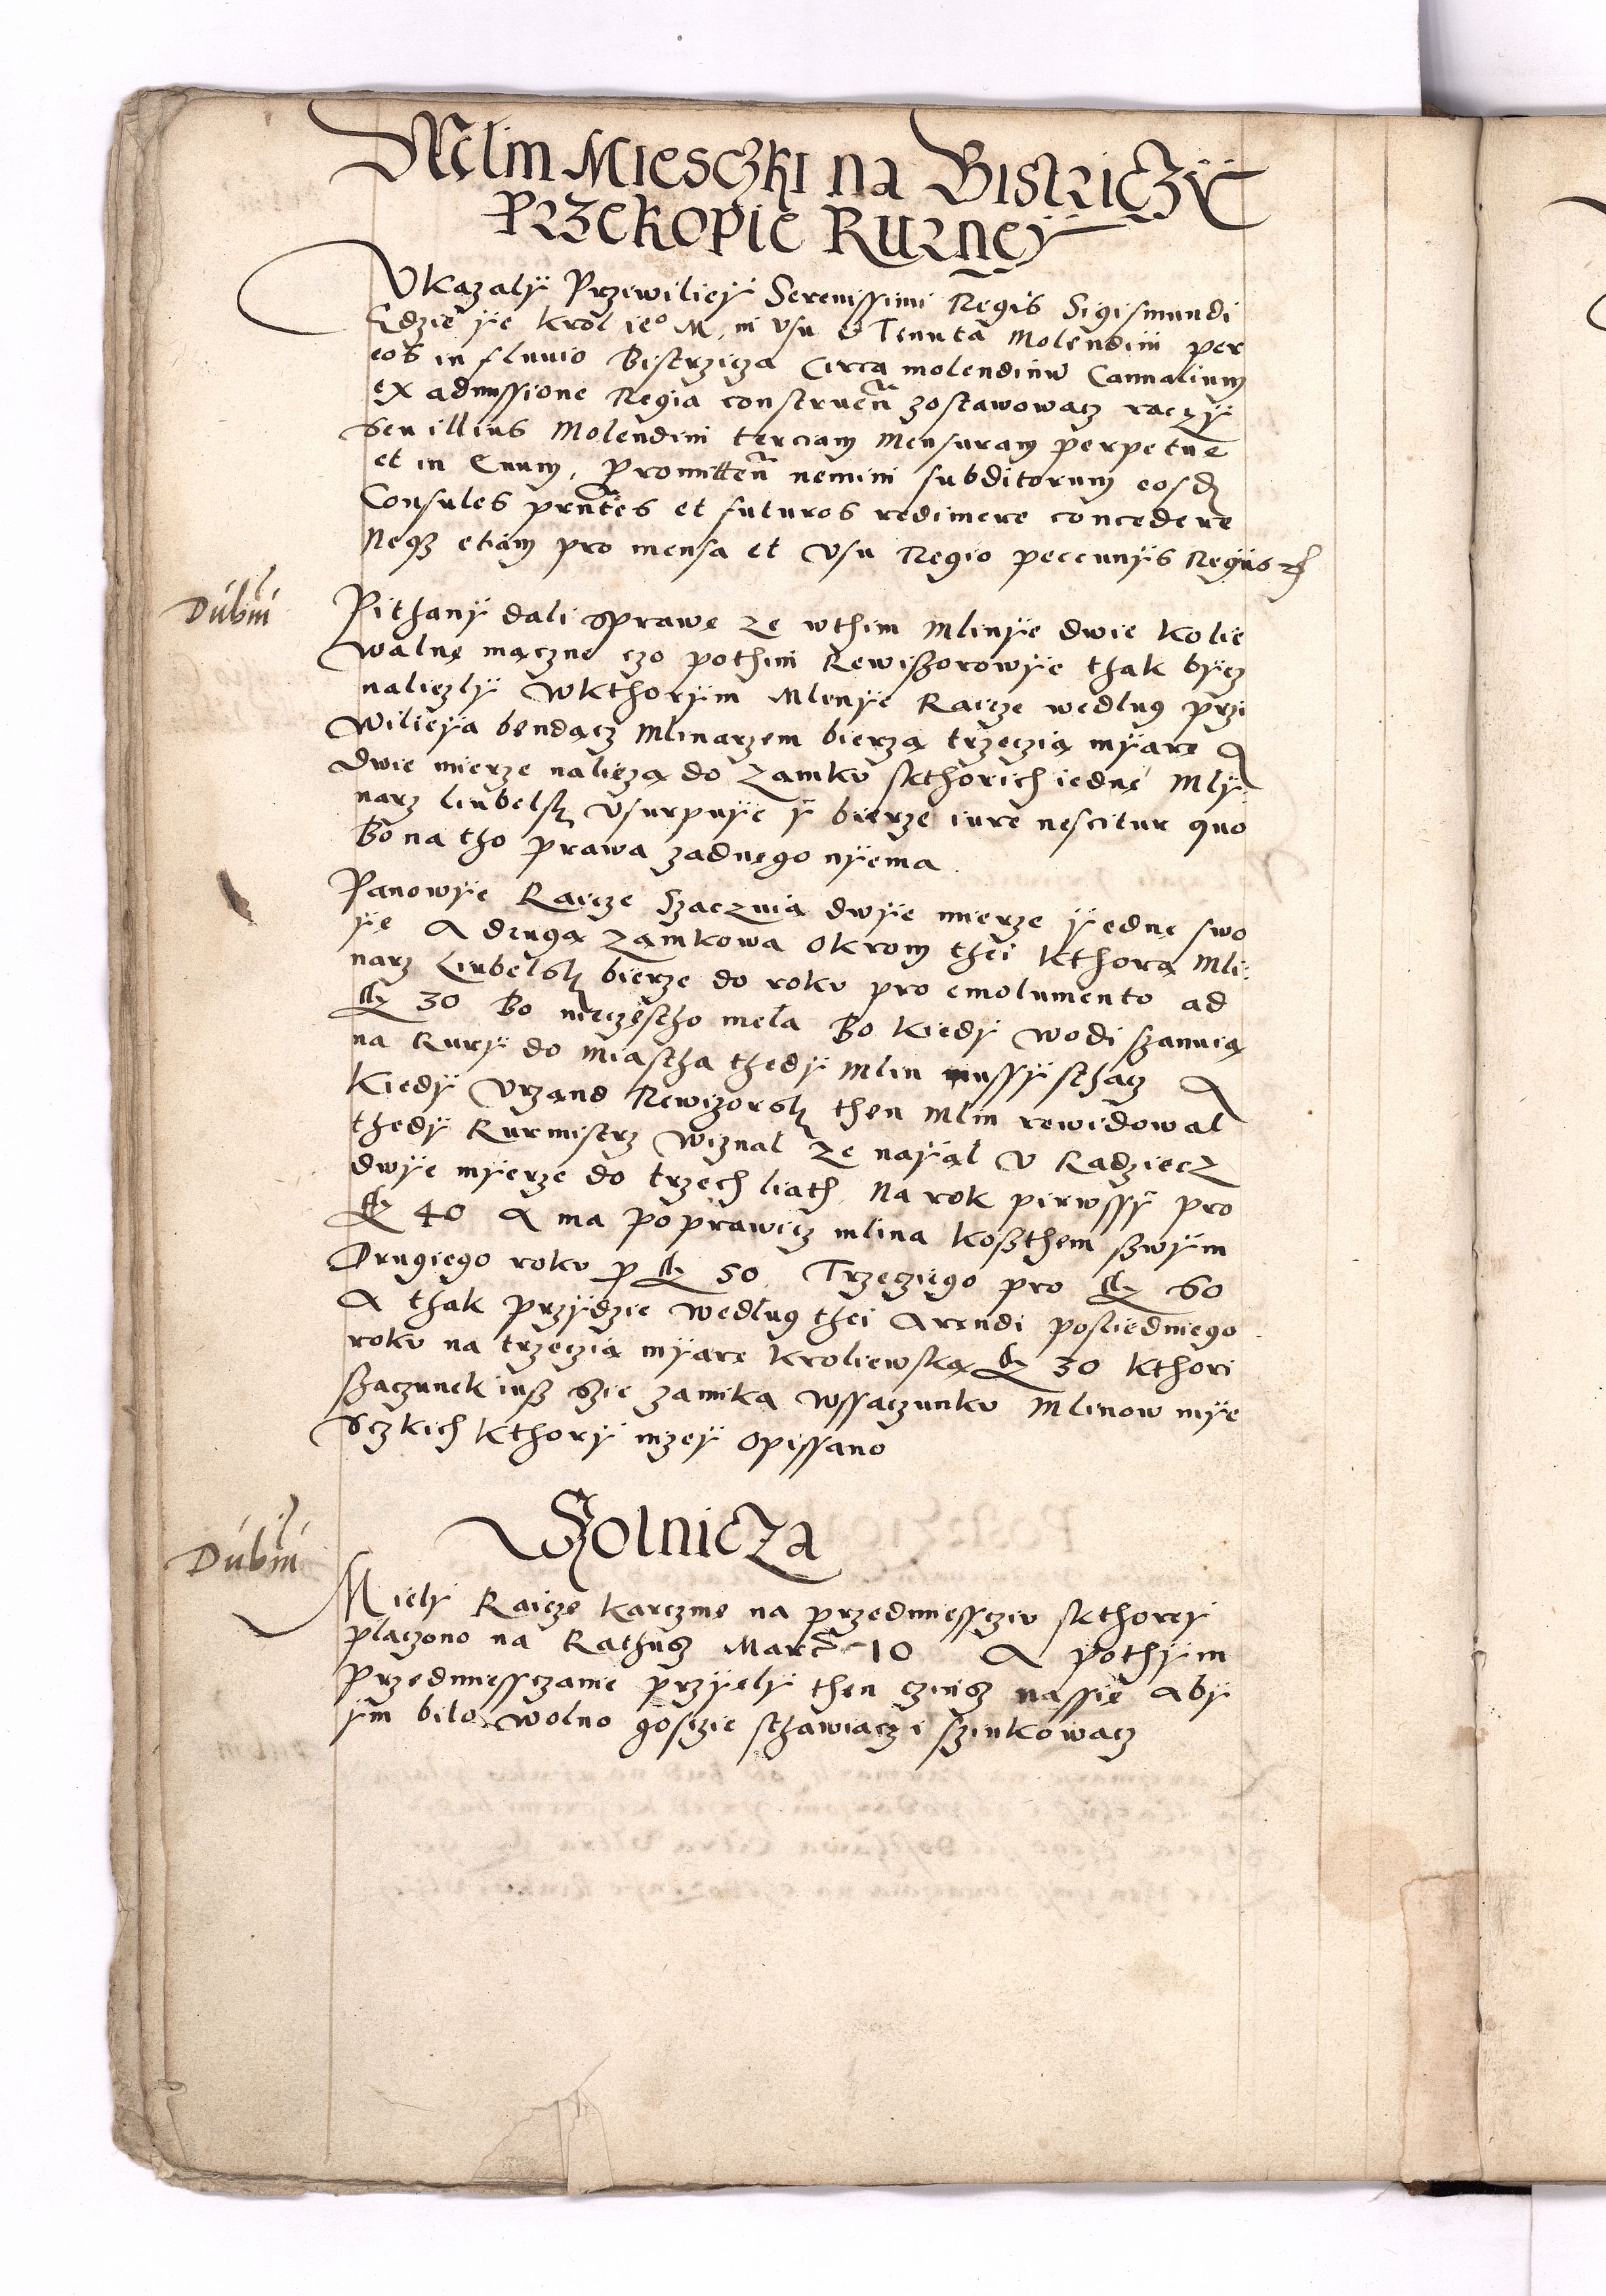 Mlin Miesczki na Bistriczy
Przekopie Rurney
Vkazaly Przewiliey Serenissimi Regis Sigismundi
Gdzie ye Krol ieo M, in vsu et Tenuta Molendini per
eos in fluuio Bistrzicza Circa molendinu Cannalium
ex admissione Regia construen zostawowacz raczy
seu illius Molendini terciam Mensuram perpetue
et in Euum, promitten nemini subditorum eosd
Consules prntes et futuros redimere concedere
Neqz etiam pro mensa et vsu Regio peccunys Regiis
Dubiu
Pithany dali sprawe ze wthim mlinye dwie Kolie
walne mączne czo pothim Rewiszorowye thak bycz
naliezly Wkthorym Mlenye Raicze wedlug przi
Wilieya bendącz Mlinarzem bierzą trzeczią myare A
dwie mierze nalieżą do Zamku skthorich iedne Mly-
narz liubelsk vsurpuye y bierze iure nescitur quo
Bo na tho prawa zadnego nyema.
Panowye Raicze Szaczuią dwye mierze yedne swo
ye A drugą zamkowa okrom thei Kthorą Mli-
narz Liubelsk bierze do roku pro emolumento ad
30 Bo nieczęstho mela Bo kiedy wodi stanuią
na Rury do Miastha thedy Mlin mussy sthacz A
Kiedy Vrzand Rewizorsk then Mlin rewidowal
thedy Rurmistrz wiznal ze nayal v Radziecz
dwye myerze do trzech liath. Na rok pirwssy pro
40 A ma poprawicz mlina koszthem szwym
Drugiego roku p 50. Trzecziego pro 60
A thak przydzie wedlug thei Arendi posliedniego
roku na trzeczią myare Kroliewską 30 Kthori
szaczunek iusz szie zamika wssaczunku Mlinow mye
sczkich Kthory nizey opissano
Szolnicza
Dubiu
Miely Raicze karczme na przedmiessciu skthorey
placzono na Rathusz Marc 10 A pothym
przedmiessczanie przyiely then czinsz nassie Aby
ym bilo wolno goscie sthawiacz i szinkowacz